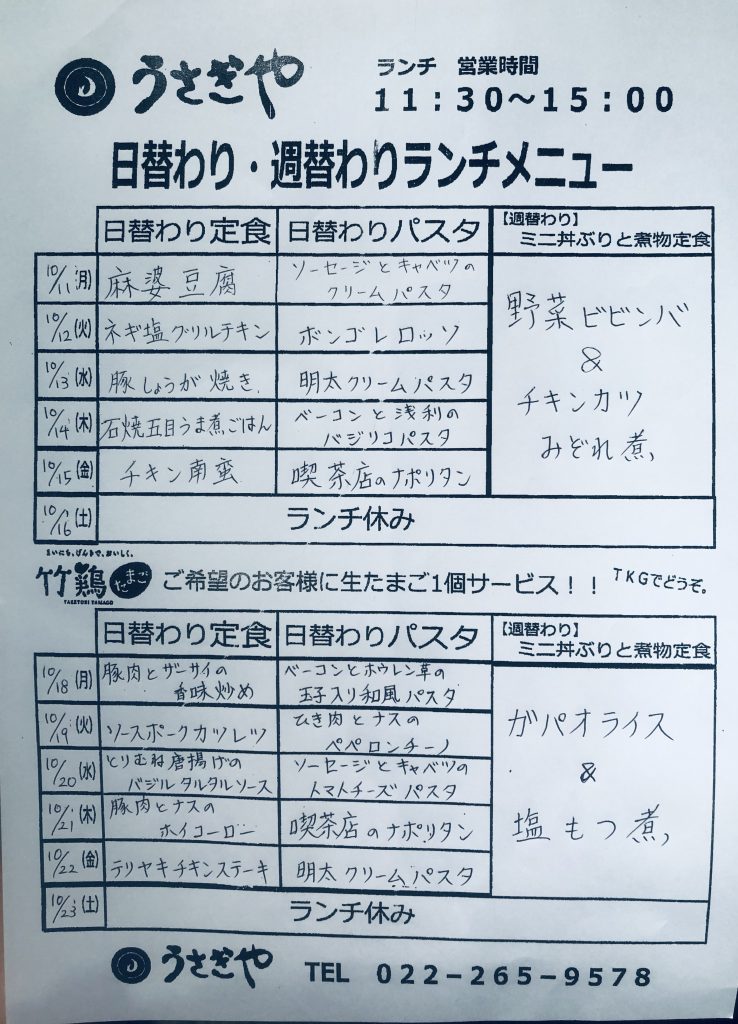 うさぎや
ランチ 営業時間
11:30〜15:00
日替わり・週替わりランチメニュー
日替わり定食 日替わりパスタ 【週替わり】
ミニ丼ぶりと煮物定食
10/11(月) 麻婆豆腐 ソーセージとキャベツの
クリームパスタ
10/12(火) ネギ塩グリルチキン ボンゴレロッソ
10/13(水) 豚しょうが焼き 明太クリームパスタ
10/14(木) 石焼五目うま煮ごはん ベーコンと浅利の
バジリコパスタ
10/15(金) チキン南蛮 喫茶店のナポリタン
野菜ビビンバ
&
チキンカツ
みぞれ煮
10/16(土) ランチ休み
まいにち、げんきで、おいしく。
竹鶏たまご
TAKETORI TAMAGO
ご希望のお客様に生たまご1個サービス!! TKGでどうぞ。
日替わり定食 日替わりパスタ 【週替わり】
ミニ丼ぶりと煮物定食
10/18(月) 豚肉とザーサイの
香味炒め
ベーコンとホウレン草の
玉子入り和風パスタ
10/19(火) ソースポークカツレツ ひき肉とナスの
ペペロンチーノ
10/20(水) とりむね唐揚げの
バジルタルタルソース
ソーセージとキャベツの
トマトチーズパスタ
10/21(木) 豚肉とナスの
ホイコーロー
喫茶店のナポリタン
10/22(金) テリヤキチキンステーキ 明太クリームパスタ
ガパオライス
&
塩もつ煮
10/23(土) ランチ休み
うさぎや TEL 022-265-9578